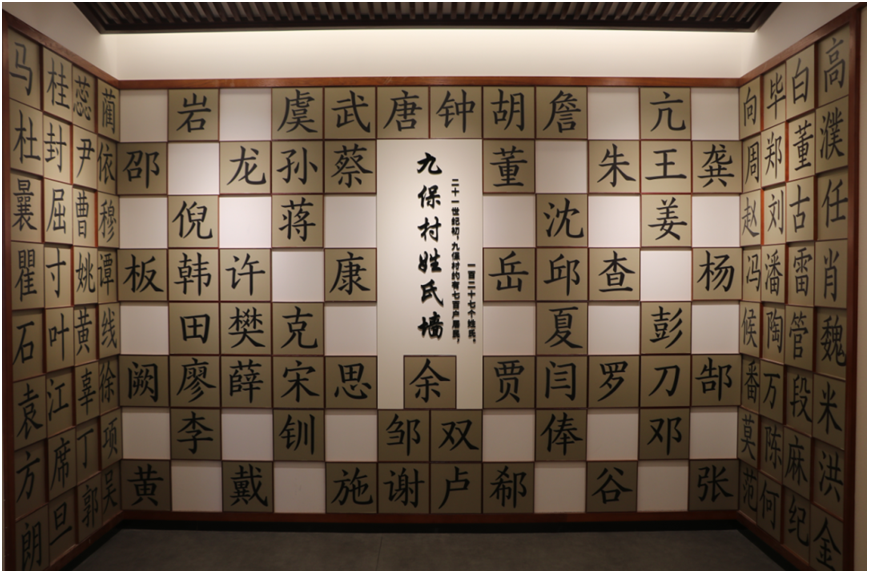 九保村姓氏墙
二十一世纪初，九保村约有七百户居民，
一百二十七个姓氏。
马 桂 蕊 蔺 岩 虞 武 唐 钟 胡 詹 亢 向 毕 白 高
杜 封 尹 依 邵 龙 孙 蔡 董 朱 王 龚 周 郑 董 濮
曩 屈 曹 穆 倪 蒋 沈 姜 赵 刘 古 任
瞿 寸 姚 谭 板 韩 许 康 岳 邱 查 杨 冯 潘 雷 肖
石 叶 黄 线 田 樊 克 夏 彭 候 陶 管 魏
袁 江 辜 徐 阙 廖 薛 宋 思 余 贾 闫 罗 刀 郜 番 万 段 米
方 席 丁 项 李 钏 邹 双 俸 邓 莫 陈 麻 洪
朗 旦 郭 吴 黄 戴 施 谢 卢 郗 谷 张 范 何 纪 金